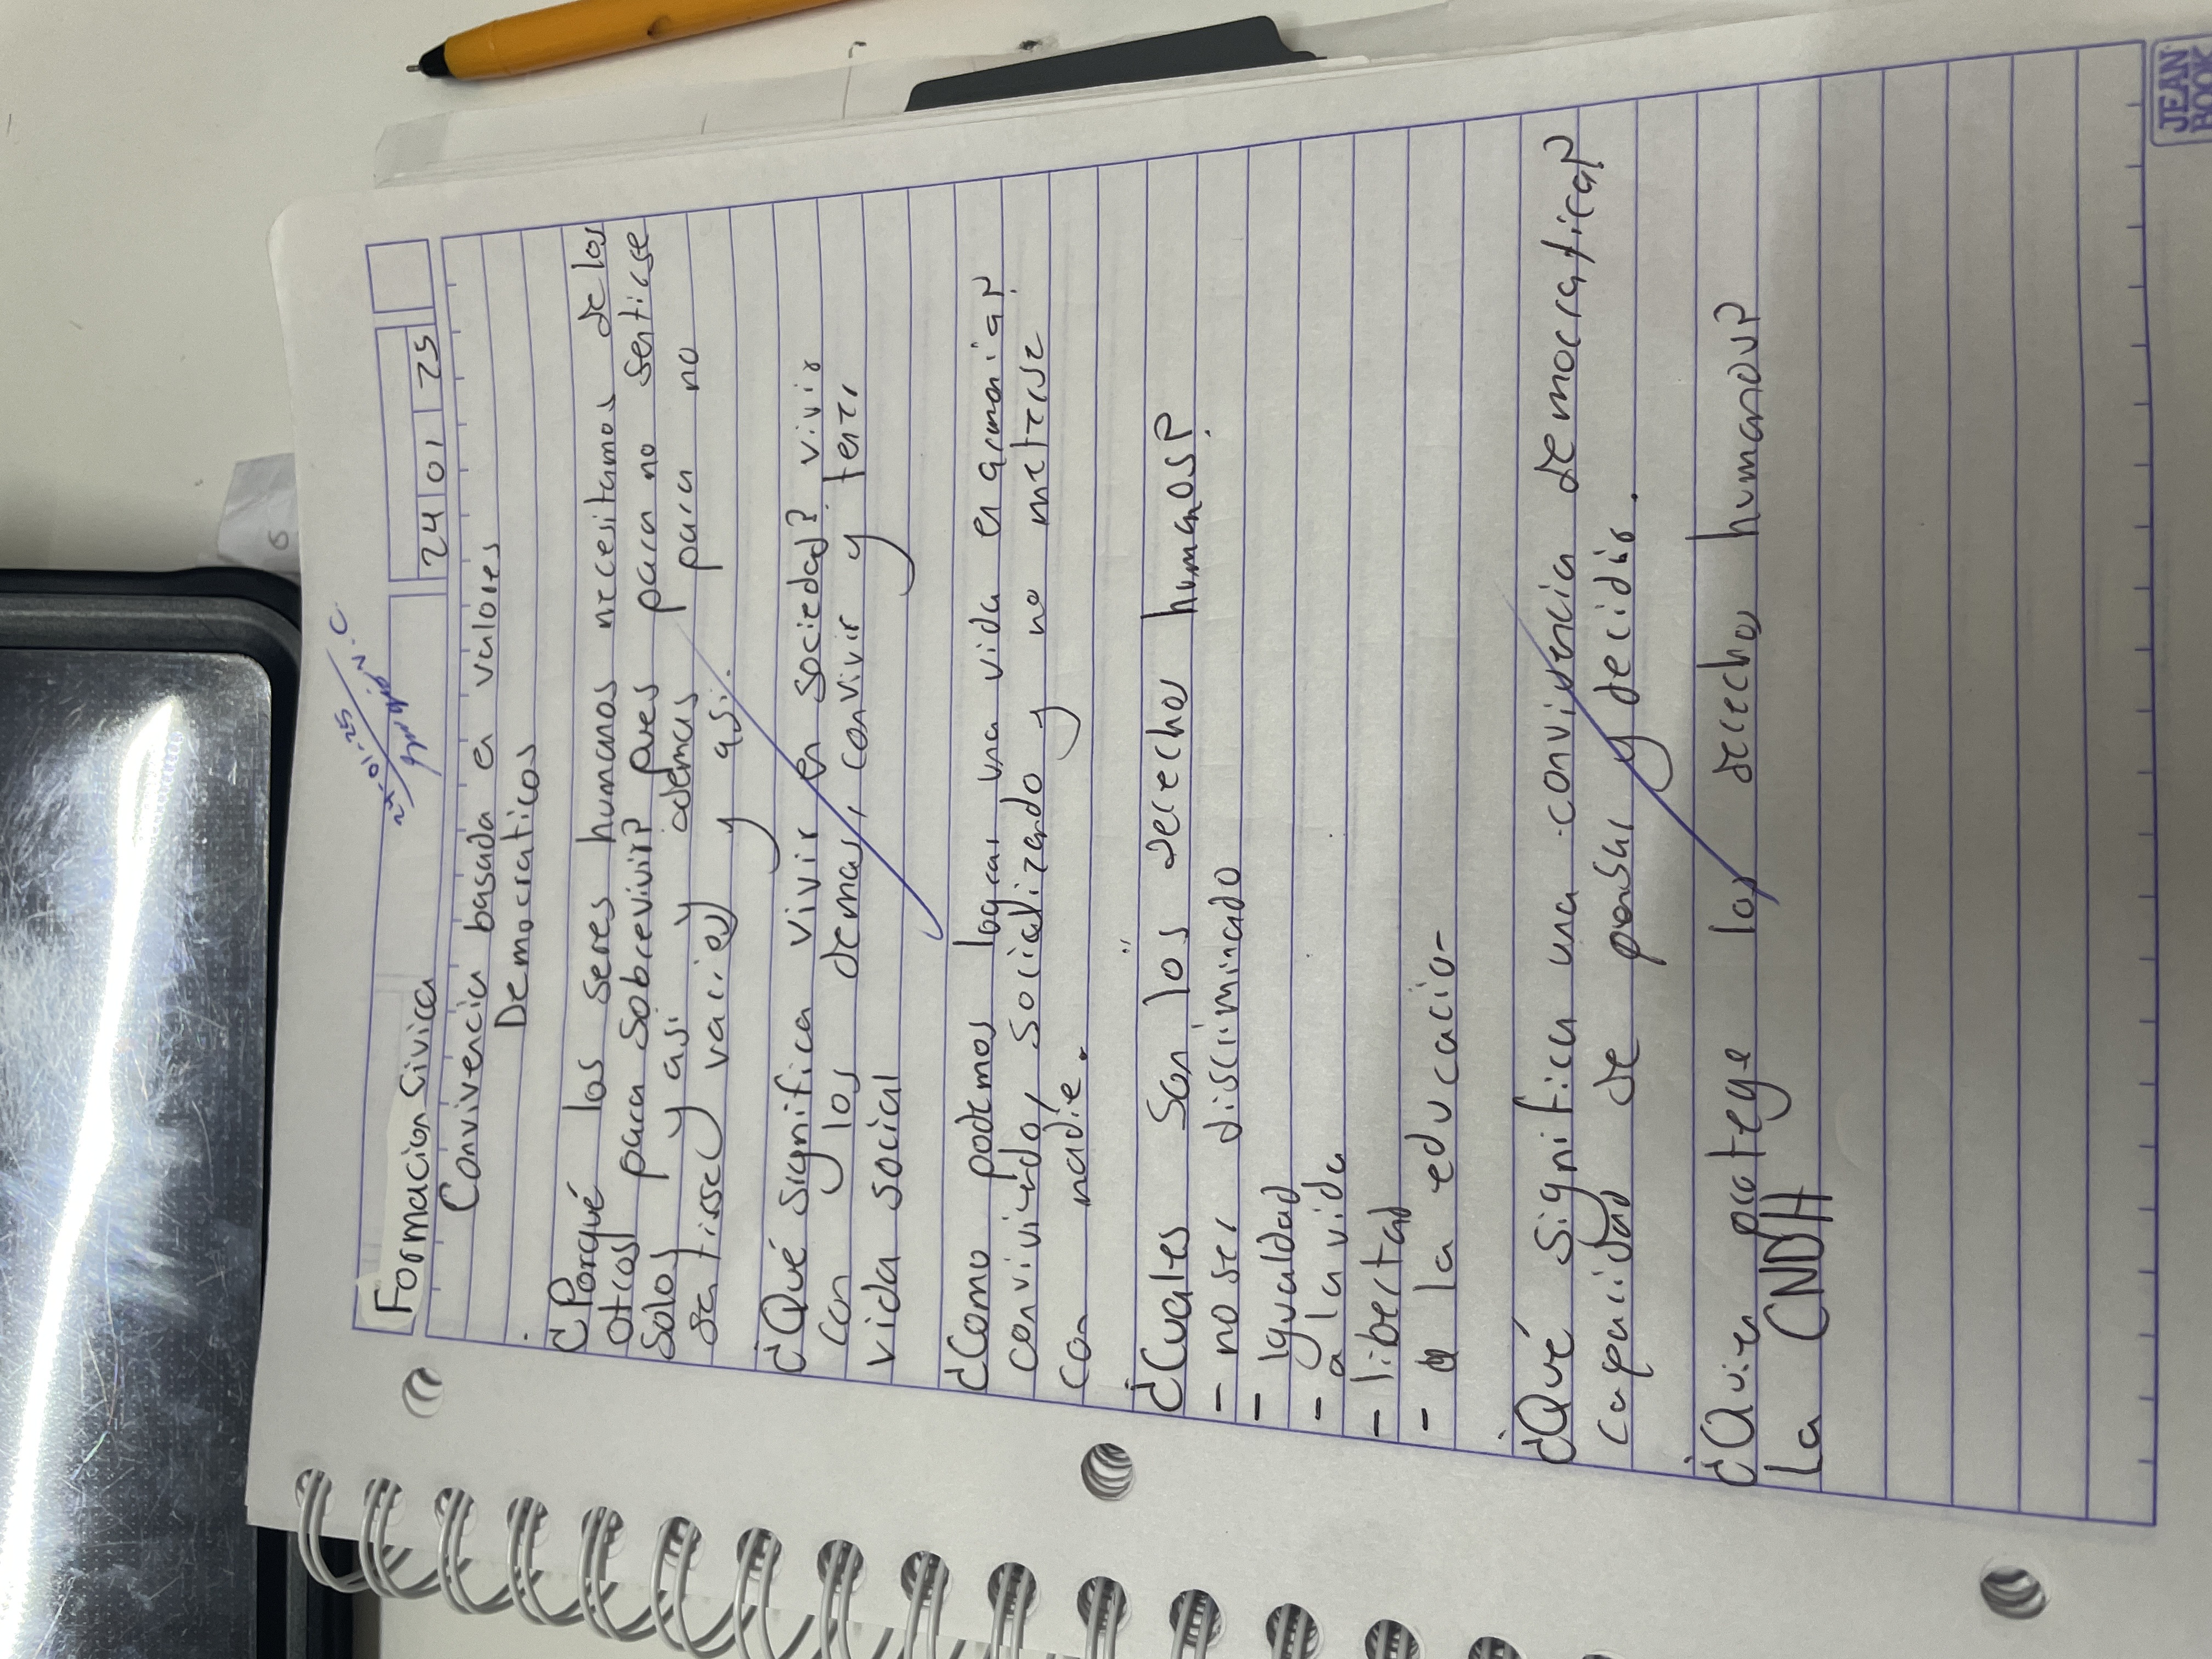 Formacion Sivica
24 01 25
24-01-25
Convivencia basada en valores
Democraticos
¿Porqué los seres humanos necesitamos de los
otros para sobrevivir? pues para no sentirse
solos y asi y ademas para no
ser tirsel varios y asi.
¿Qué significa vivir en sociedad? vivir
con los demas, convivir y tener
vida social
¿Como podemos lograr una vida en armonia?
conviviendo, socializando y no meterse
con nadie.
¿Cuales son los derechos humanos?
- no ser discriminado
- igualdad
- a la vida
- libertad
- a la educacion
¿Qué significa una convivencia democratica?
capacidad de pensar y decidir.
¿Quien protege los derechos humanos?
La CNDH
JEAN
BOOK